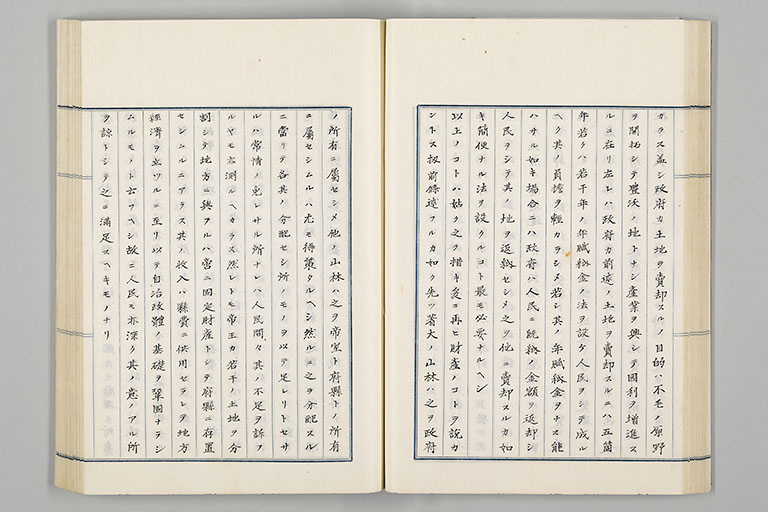 カラス蓋シ政府カ土地ヲ賣却スルノ目的ハ不毛ノ原野
ヲ開拓シテ豊沃ノ地トナシ産業ヲ興シテ國利ヲ増進ス
ルニ在リ左レハ政府カ前述ノ土地ヲ賣却スルニハ五箇
年若クハ若干年ノ年賦納金ノ法ヲ設ケ人民ヲシテ成ル
ヘク其ノ負擔ヲ輕カラシメ若シ其ノ年賦納金ヲナス能
ハサル如キ場合ニハ政府ハ人民ニ既納ノ金額ヲ返却シ
人民ヲシテ其ノ地ヲ返納セシメ之ヲ他ニ賣却スルカ如
キ簡便ナル法ヲ設クルコト最モ必要ナルヘシ
以上ノコトハ姑ク之ヲ措キ爰ニ再ヒ財産ノコトヲ説カ
ントス扨前條述フルカ如ク先ツ著大ノ山林ハ之ヲ政府
ノ所有ニ屬セシメ他ノ山林ハ之ヲ帝室ト府縣トノ所有
ニ屬セシムルハ尤モ得策タルヘシ然ルニ之ヲ分配スル
ニ當リテ各其ノ分配セシ所ノモノヲ以テ足レリトセサ
ルハ常情ノ免レサル所ナレハ人民間々其ノ不足ヲ訴フ
ルヤモ亦測ルヘカラス然レトモ帝王カ若干ノ土地ヲ分
割シテ地方ニ與ヲルハ啻ニ固定財産トシテ府縣ニ存置
セシムルニアラス其ノ收入ハ縣費ニ供用セラレテ地方
經濟ヲ立ツルニ至リ以テ自治政體ノ基礎ヲ鞏固ナラシ
ムルモノト云フヘシ故ニ人民モ亦深ク其ノ意ノアル所
ヲ諒トシテ之ニ滿足スヘキモノナリ